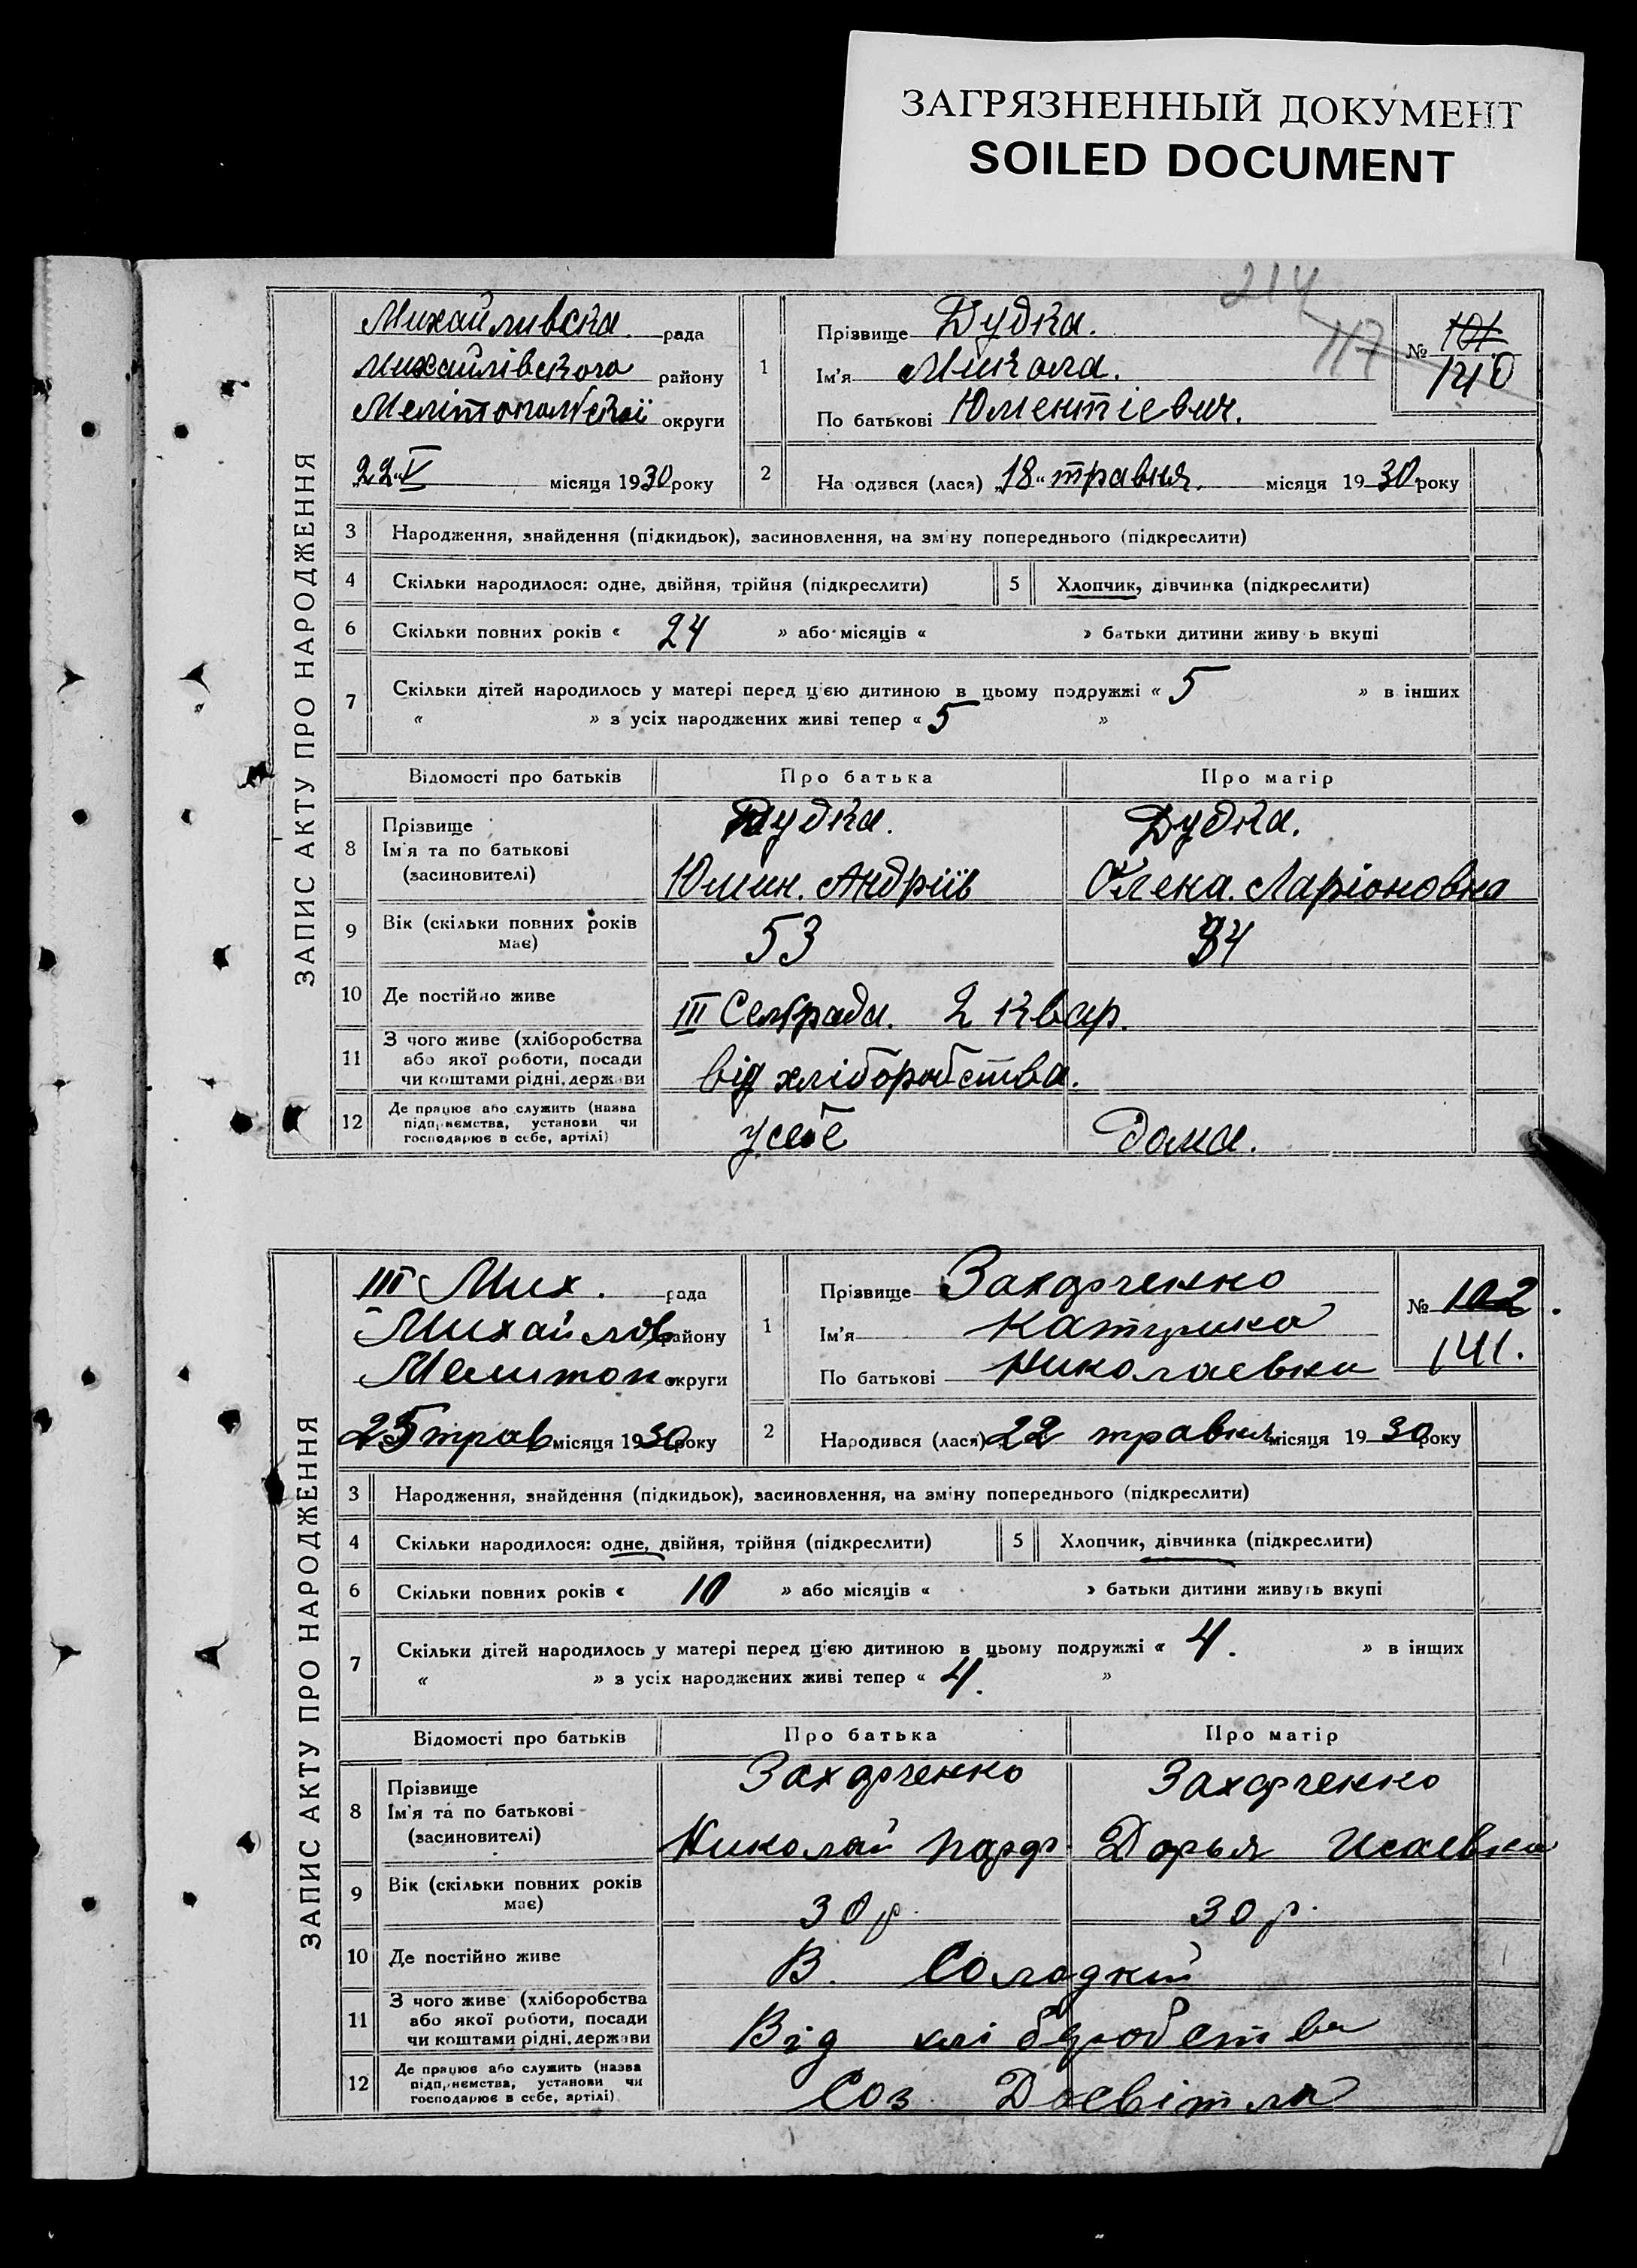 ЗАГРЯЗНЕННЫЙ ДОКУМЕНТ
SOILED DOCUMENT
214
117
ЗАПИС АКТУ ПРО НАРОДЖЕННЯ
Михайливска рада
Михайлівского району
Мелітопольскої округи
22 V місяця 1930 року
1 Прізвище Дудка.
Ім'я Микола.
По батькові Юментіевич.
№ 101
140
2 Народився (лася) „18“ травня. місяця 1930 року
3 Народження, знайдення (підкидьок), засиновлення, на зміну попереднього (підкреслити)
4 Скільки народилося: одне, двійня, трійня (підкреслити) 5 Хлопчик, дівчинка (підкреслити)
6 Скільки повних років « 24 » або місяців « » батьки дитини живуть вкупі
7 Скільки дітей народилось у матері перед цією дитиною в цьому подружжі « 5 » в інших
« » з усіх народжених живі тепер « 5 »
Відомості про батьків Про батька Про матір
8 Прізвище
Ім'я та по батькові
(засиновителі)
Дудка. Дудка.
Юмин. Андріїв Олена. Ларіоновна
9 Вік (скільки повних років має) 53 34
10 Де постійно живе III Сельрада. 2 квар.
11 З чого живе (хліборобства
або якої роботи, посади
чи коштами рідні, держави
від хліборобства.
12 Де працює або служить (назва
підприємства, установи чи
господарює в себе, артілі)
у себе дома.
ЗАПИС АКТУ ПРО НАРОДЖЕННЯ
III Мих. рада
Михайлов району
Мелитоп. округи
25 трав місяця 1930 року
1 Прізвище Захарченко
Ім'я Катерина
По батькові Николаевна
№ 102.
141.
2 Народився (лася) 22 травня місяця 1930 року
3 Народження, знайдення (підкидьок), засиновлення, на зміну попереднього (підкреслити)
4 Скільки народилося: одне, двійня, трійня (підкреслити) 5 Хлопчик, дівчинка (підкреслити)
6 Скільки повних років « 10 » або місяців « » батьки дитини живуть вкупі
7 Скільки дітей народилось у матері перед цією дитиною в цьому подружжі « 4. » в інших
« » з усіх народжених живі тепер « 4. »
Відомості про батьків Про батька Про матір
8 Прізвище
Ім'я та по батькові
(засиновителі)
Захарченко Захарченко
Николай Парф. Дарья Исаевна
9 Вік (скільки повних років має) 30 р. 30 р.
10 Де постійно живе В. Солодкий
11 З чого живе (хліборобства
або якої роботи, посади
чи коштами рідні, держави
Від хліборобства
12 Де працює або служить (назва
підприємства, установи чи
господарює в себе, артілі)
Соз Досвітла